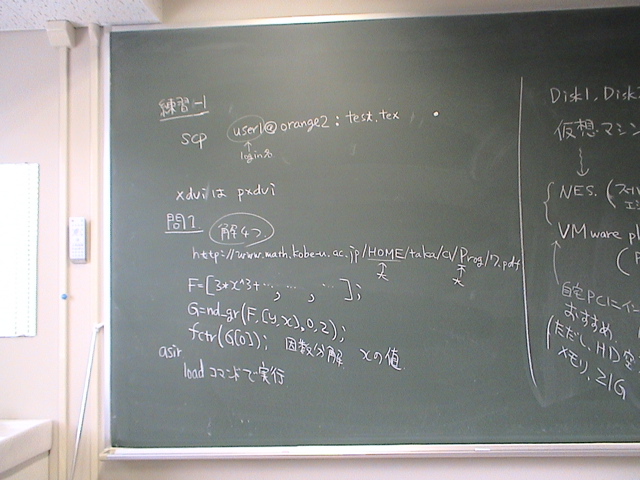 練習-1
scp user1@orange2:test.tex .
login名
xdvi は pxdvi
問1
解4つ
http://www.math.kobe-u.ac.jp/HOME/taka/
大 大
F=[3*x^3+ … , … , … ];
G=nd_gr(F,[y,x],0,2);
fctr(G[0]); 因数分解 xの値
asir
load コマンドで実行
Disk1, Disk
仮想マシン
NES.
VMware
自宅PCにイン
おすすめ.
ただし, HD
メモリ, ≥1G